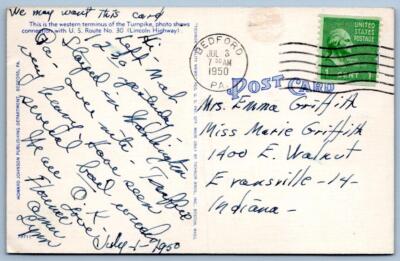 We may want this card
This is the western terminus of the Turnpike, photo shows
connection with U. S. Route No. 30 (Lincoln Highway)
Hi
Left Mah
2:30 yesterday
Stayed in Washington
Pa. last nite. Traffic
very heavy. Have seen
several bad wrecks
We are O.K.
Love
Florence
Lynn
July-1-1950
HOWARD JOHNSON PUBLISHING DEPARTMENT, BEDFORD, PA.
BEDFORD
JUL 3
7 30 AM
1950
PA.
UNITED STATES
POSTAGE
1 CENT
POST CARD
Mrs. Emma Griffith
Miss Marie Griffith
1400 E. Walnut
Evansville-14-
Indiana-